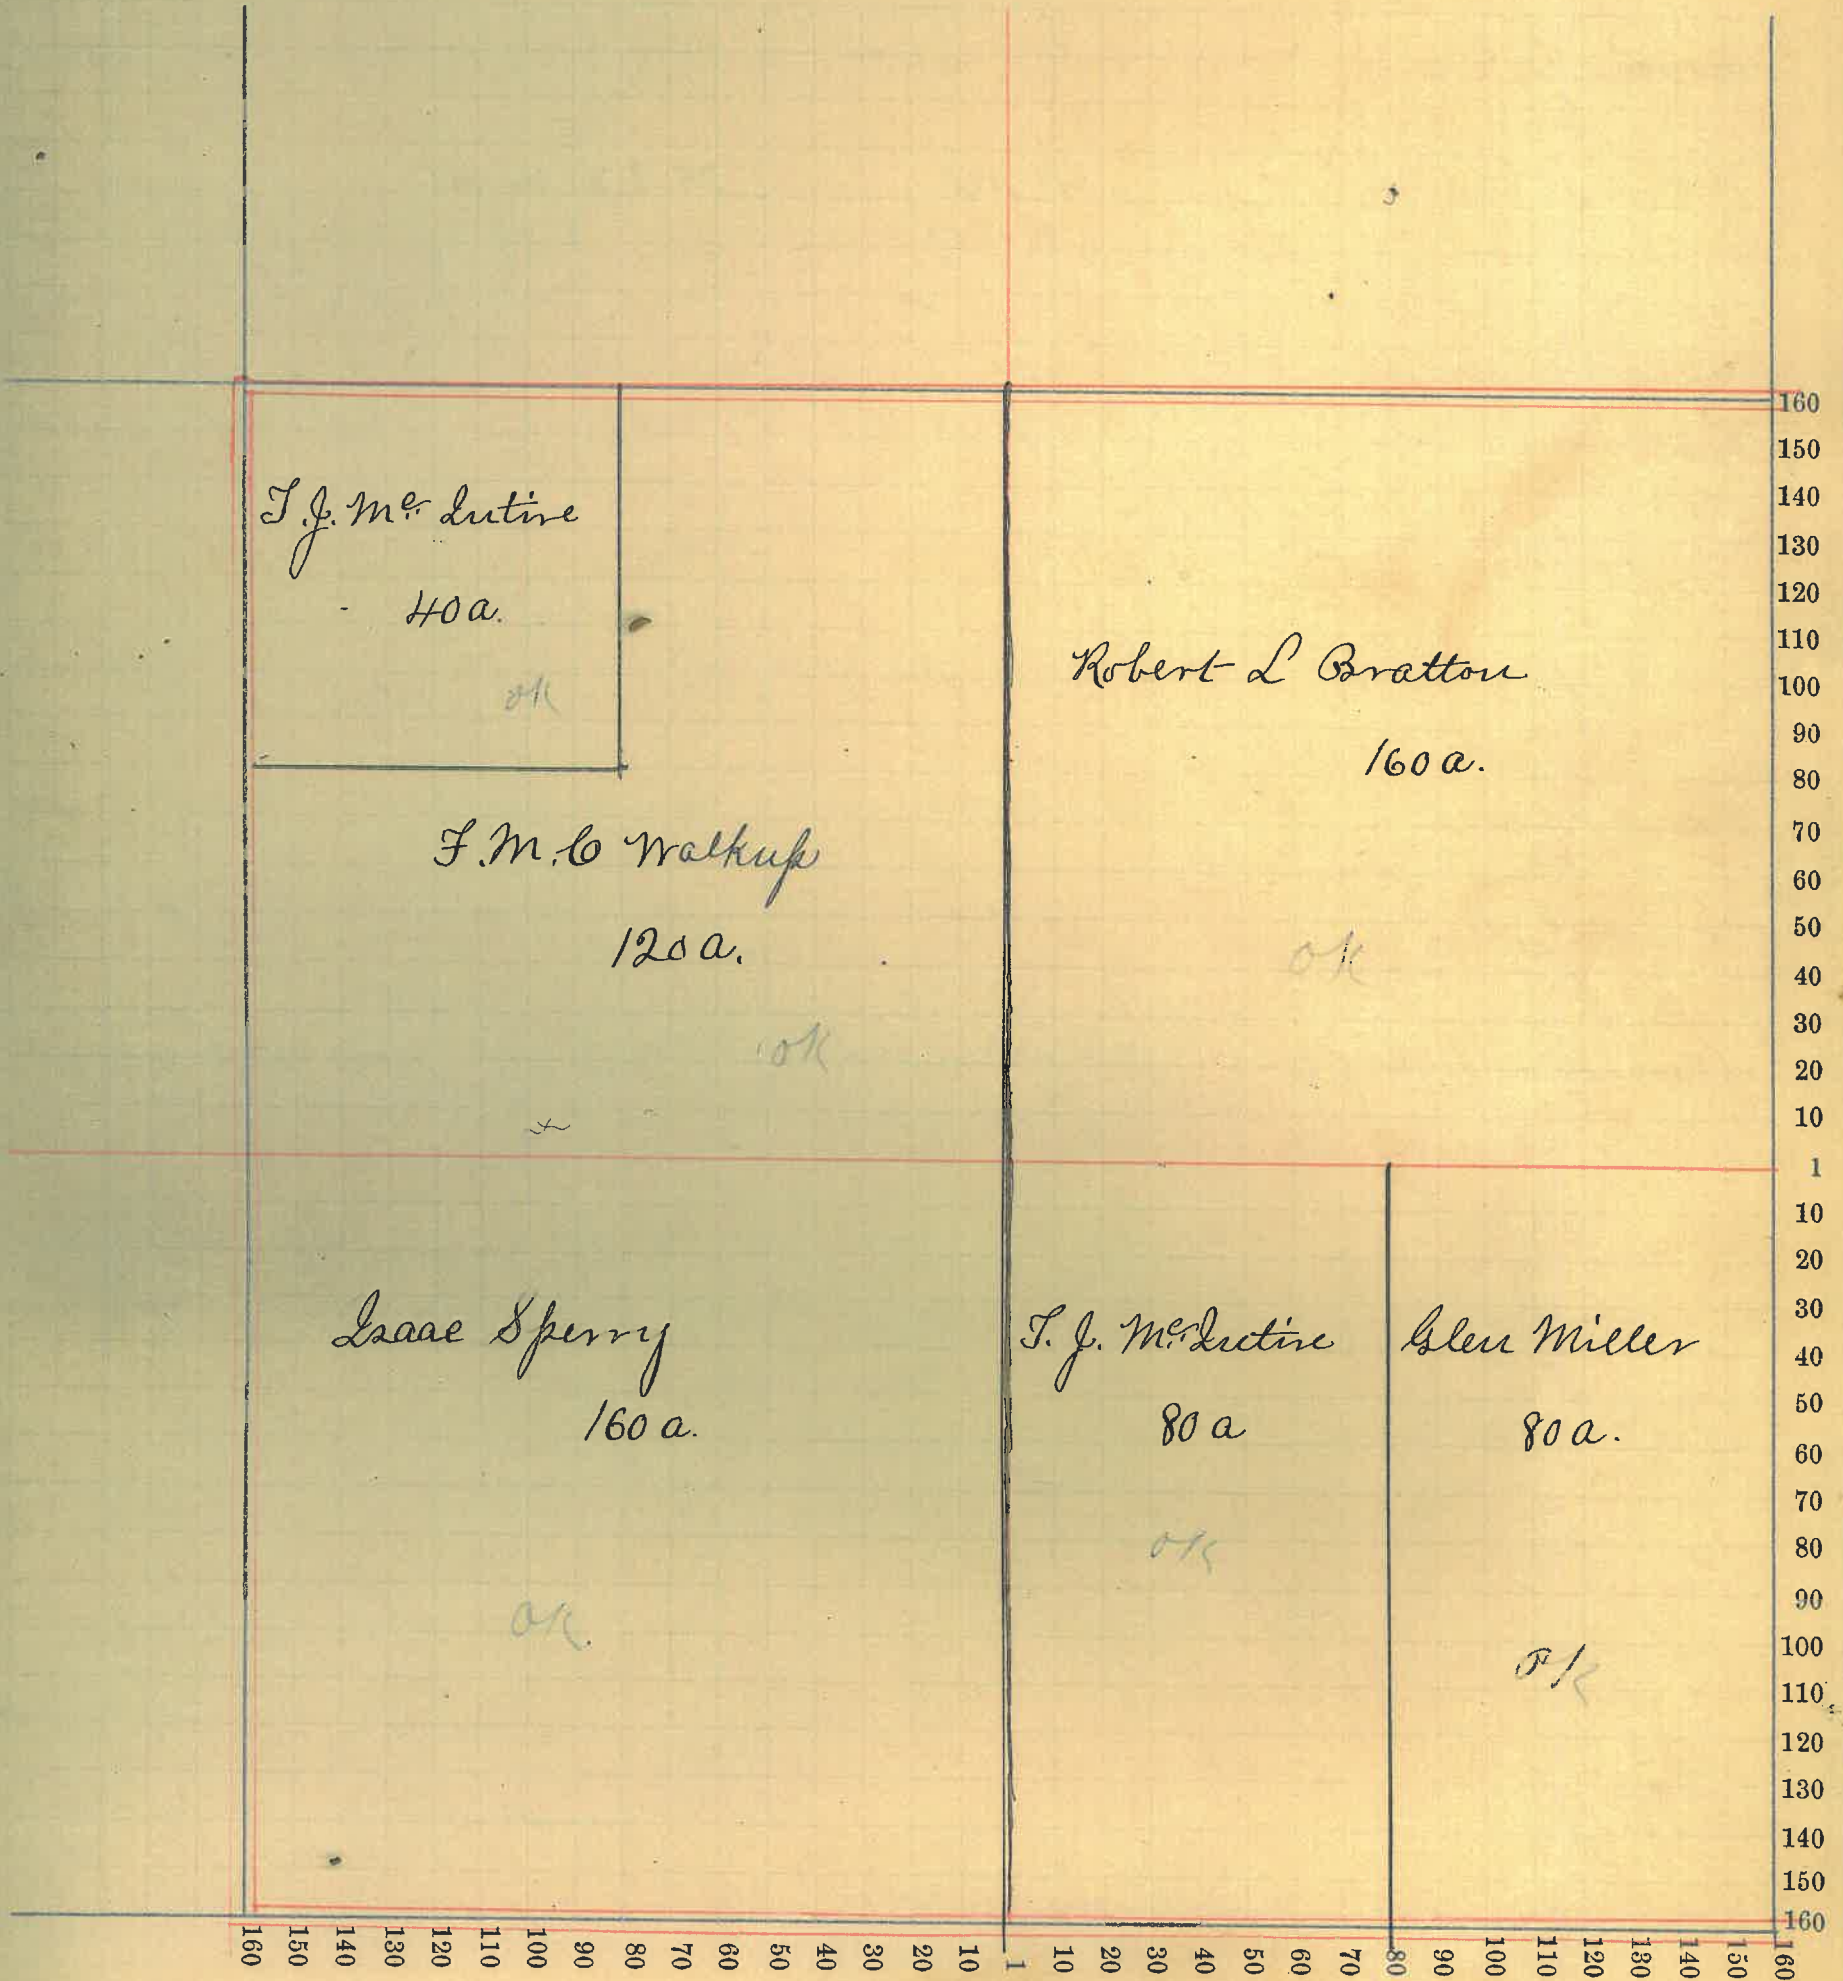 T. J. Mc. Intire
40 a.
ok
F. M. C Walkup
120 a.
ok
Robert L Bratton
160 a.
ok
Isaac Sperry
160 a.
OK.
T. J. Mc. Intire
80 a
OK
Glen Miller
80 a.
OK
160
150
140
130
120
110
100
90
80
70
60
50
40
30
20
10
1
10
20
30
40
50
60
70
80
90
100
110
120
130
140
150
160
160 150 140 130 120 110 100 90 80 70 60 50 40 30 20 10 1 10 20 30 40 50 60 70 80 90 100 110 120 130 140 150 160